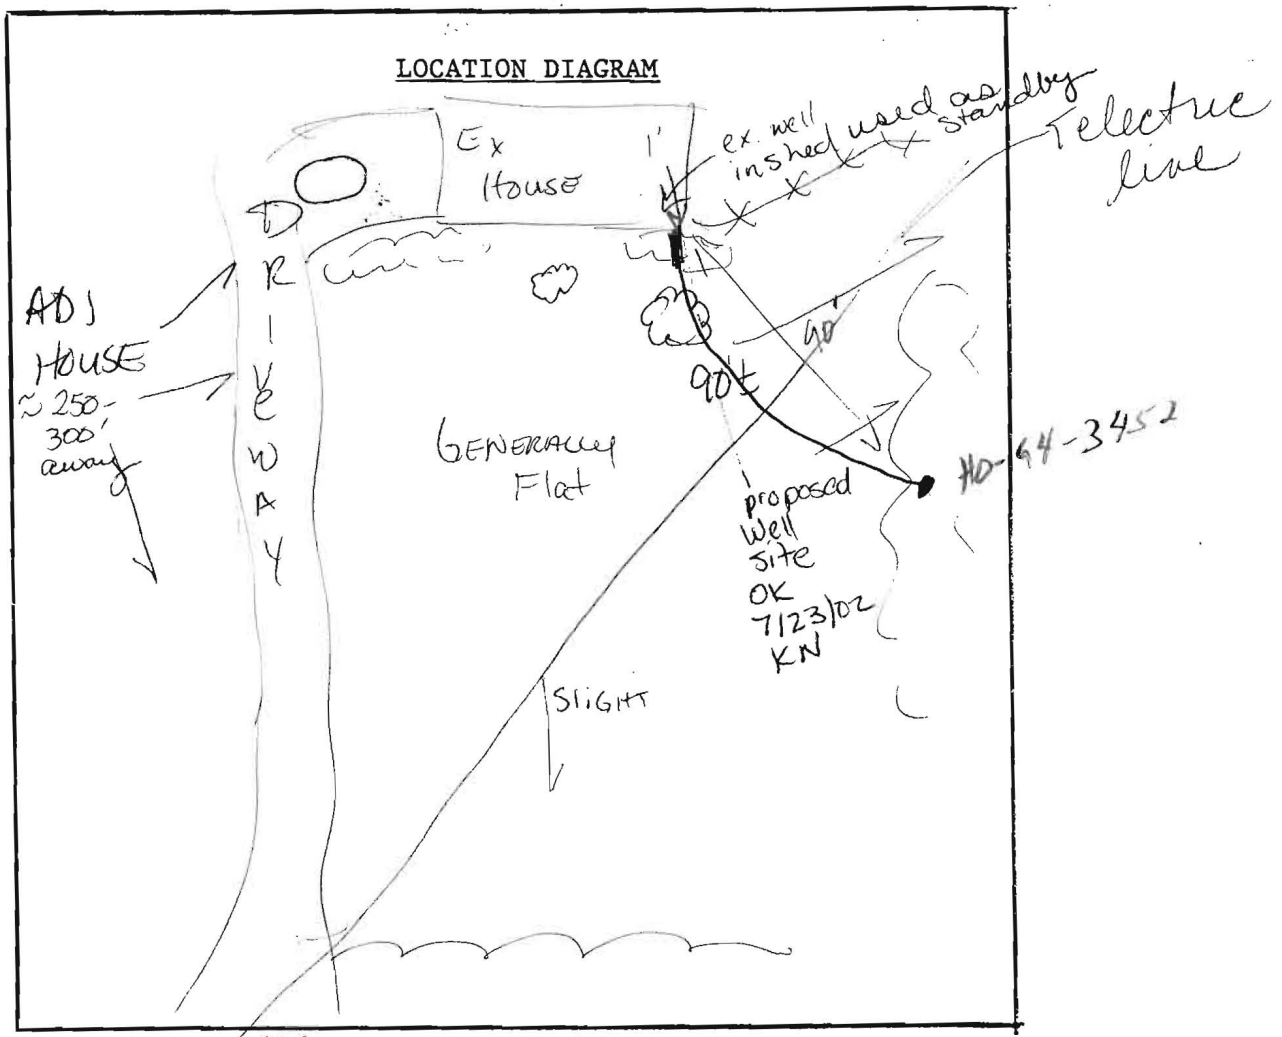 LOCATION DIAGRAM
Ex
House
1'
ex. well
in shed used as
standby
electric
line
DRIVEWAY
ADJ
HOUSE
≈ 250-
300'
away
90'
90'±
GENERALLY
Flat
HO-94-3452
proposed
Well
site
OK
7/23/02
KN
SLIGHT